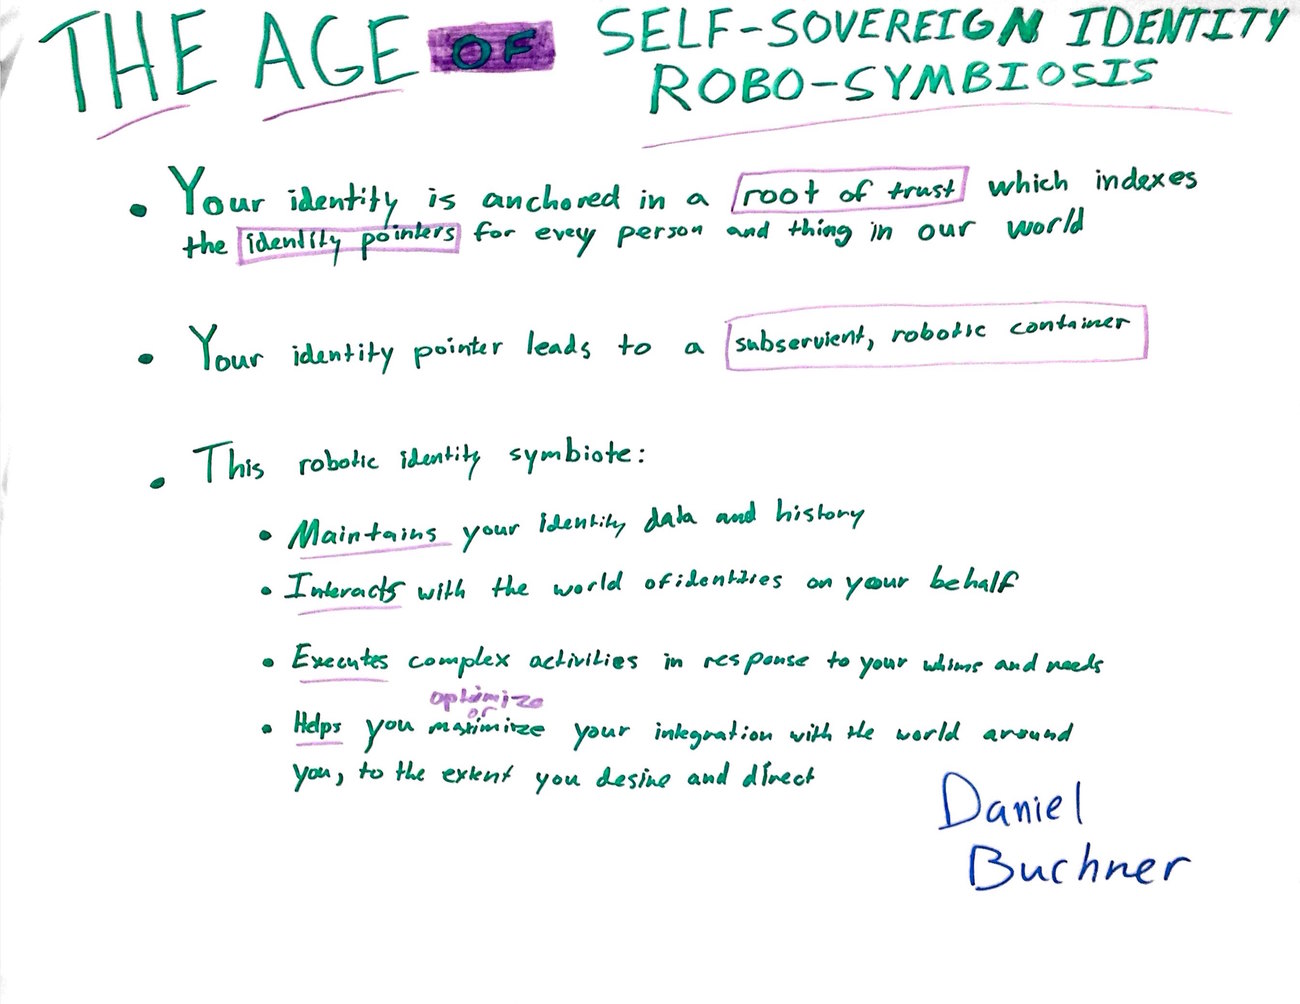 THE AGE OF SELF-SOVEREIGN IDENTITY
ROBO-SYMBIOSIS
• Your identity is anchored in a root of trust which indexes
the identity pointers for evey person and thing in our world
• Your identity pointer leads to a subservient, robotic container
• This robotic identity symbiote:
• Maintains your identity data and history
• Interacts with the world of identities on your behalf
• Executes complex activities in response to your whims and needs
optimize
or
• Helps you maximize your integration with the world around
you, to the extent you desire and direct
Daniel
Buchner